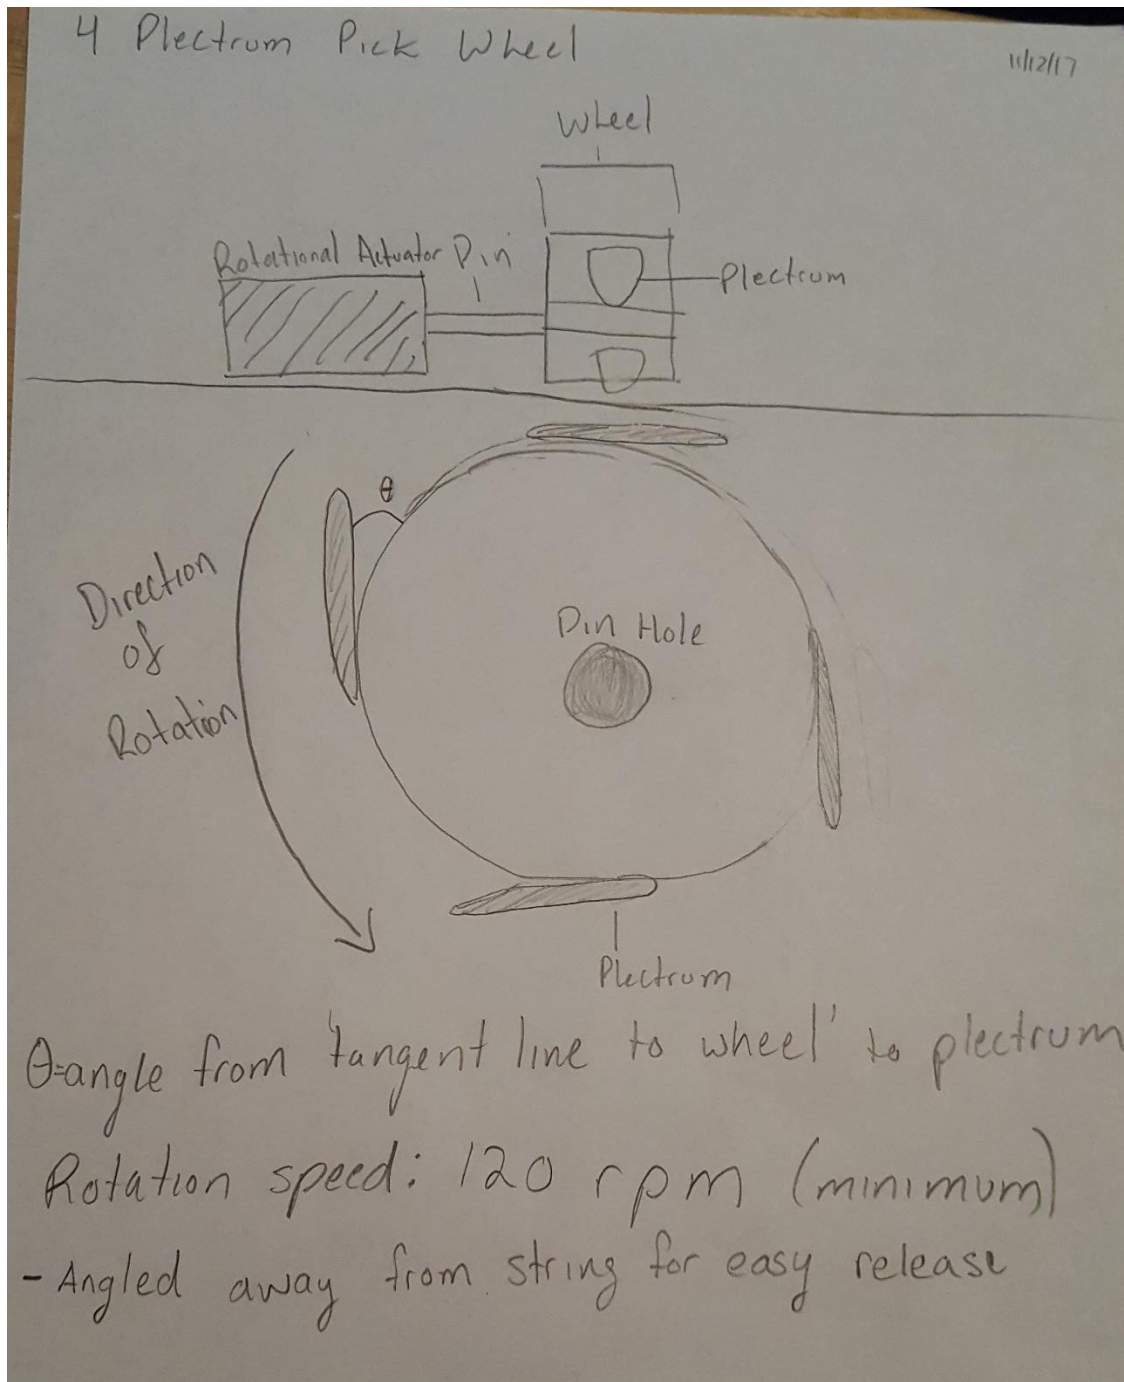 4 Plectrum Pick Wheel
11/12/17
Wheel
Rotational Actuator
Pin
Plectrum
θ
Direction
of
Rotation
Pin Hole
Plectrum
θ=angle from 'tangent line to wheel' to plectrum
Rotation speed: 120 rpm (minimum)
- Angled away from string for easy release